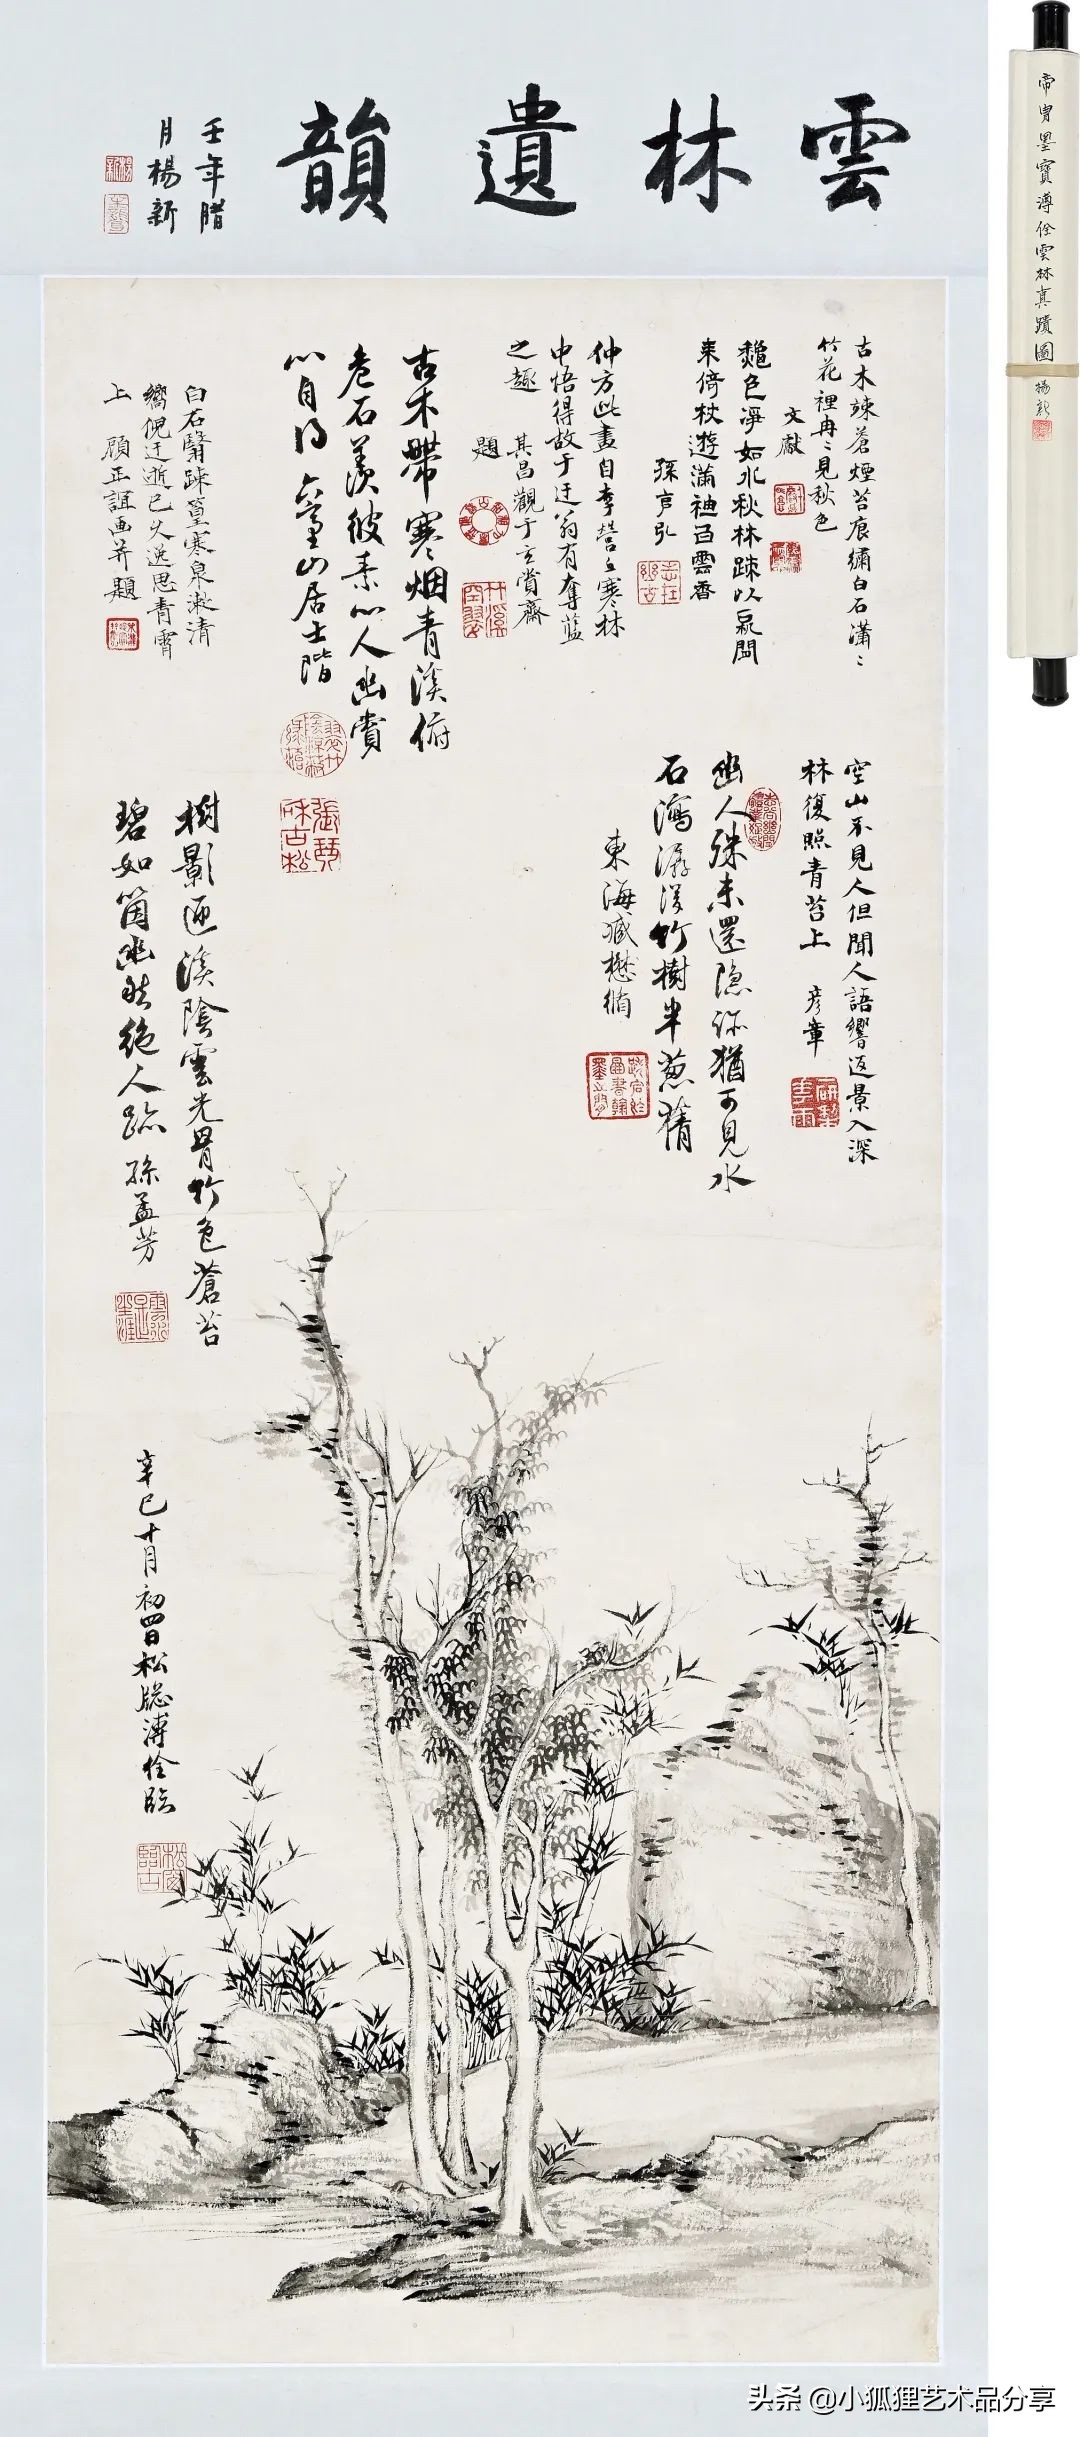 雲林遺韻
壬年腊
月楊新
帝胄墨寶溥佺雲林真蹟圖 楊新
古木竦蒼煙苔痕繡白石瀟〻
竹花裡冉〻見秋色
文獻
黛色淨如水秋林疎以
來倚杖遊滿袖百雲香
孫克弘
仲方此畫自李營丘寒林
中悟得故于迂翁有奪藍
之趣 其昌觀于玄賞齋
題
古木帶寒烟青溪俯
危石羨彼素心人幽賞
心自得 山居士階
白石翳疎篁寒泉漱清
響倪迂逝已久逸思青霄
上 顧正誼画并題
空山不見人但聞人語響返景入深
林復照青苔上 彦章
幽人殊未還隐深猶可見水
石瀉潺湲竹樹半葱蒨
東海臧懋循
樹影迊溪陰雲光冒竹色蒼苔
碧如箇幽然絶人跡 孫孟芳
辛巳十月初四日松窓溥佺臨
頭条 @小狐狸艺术品分享